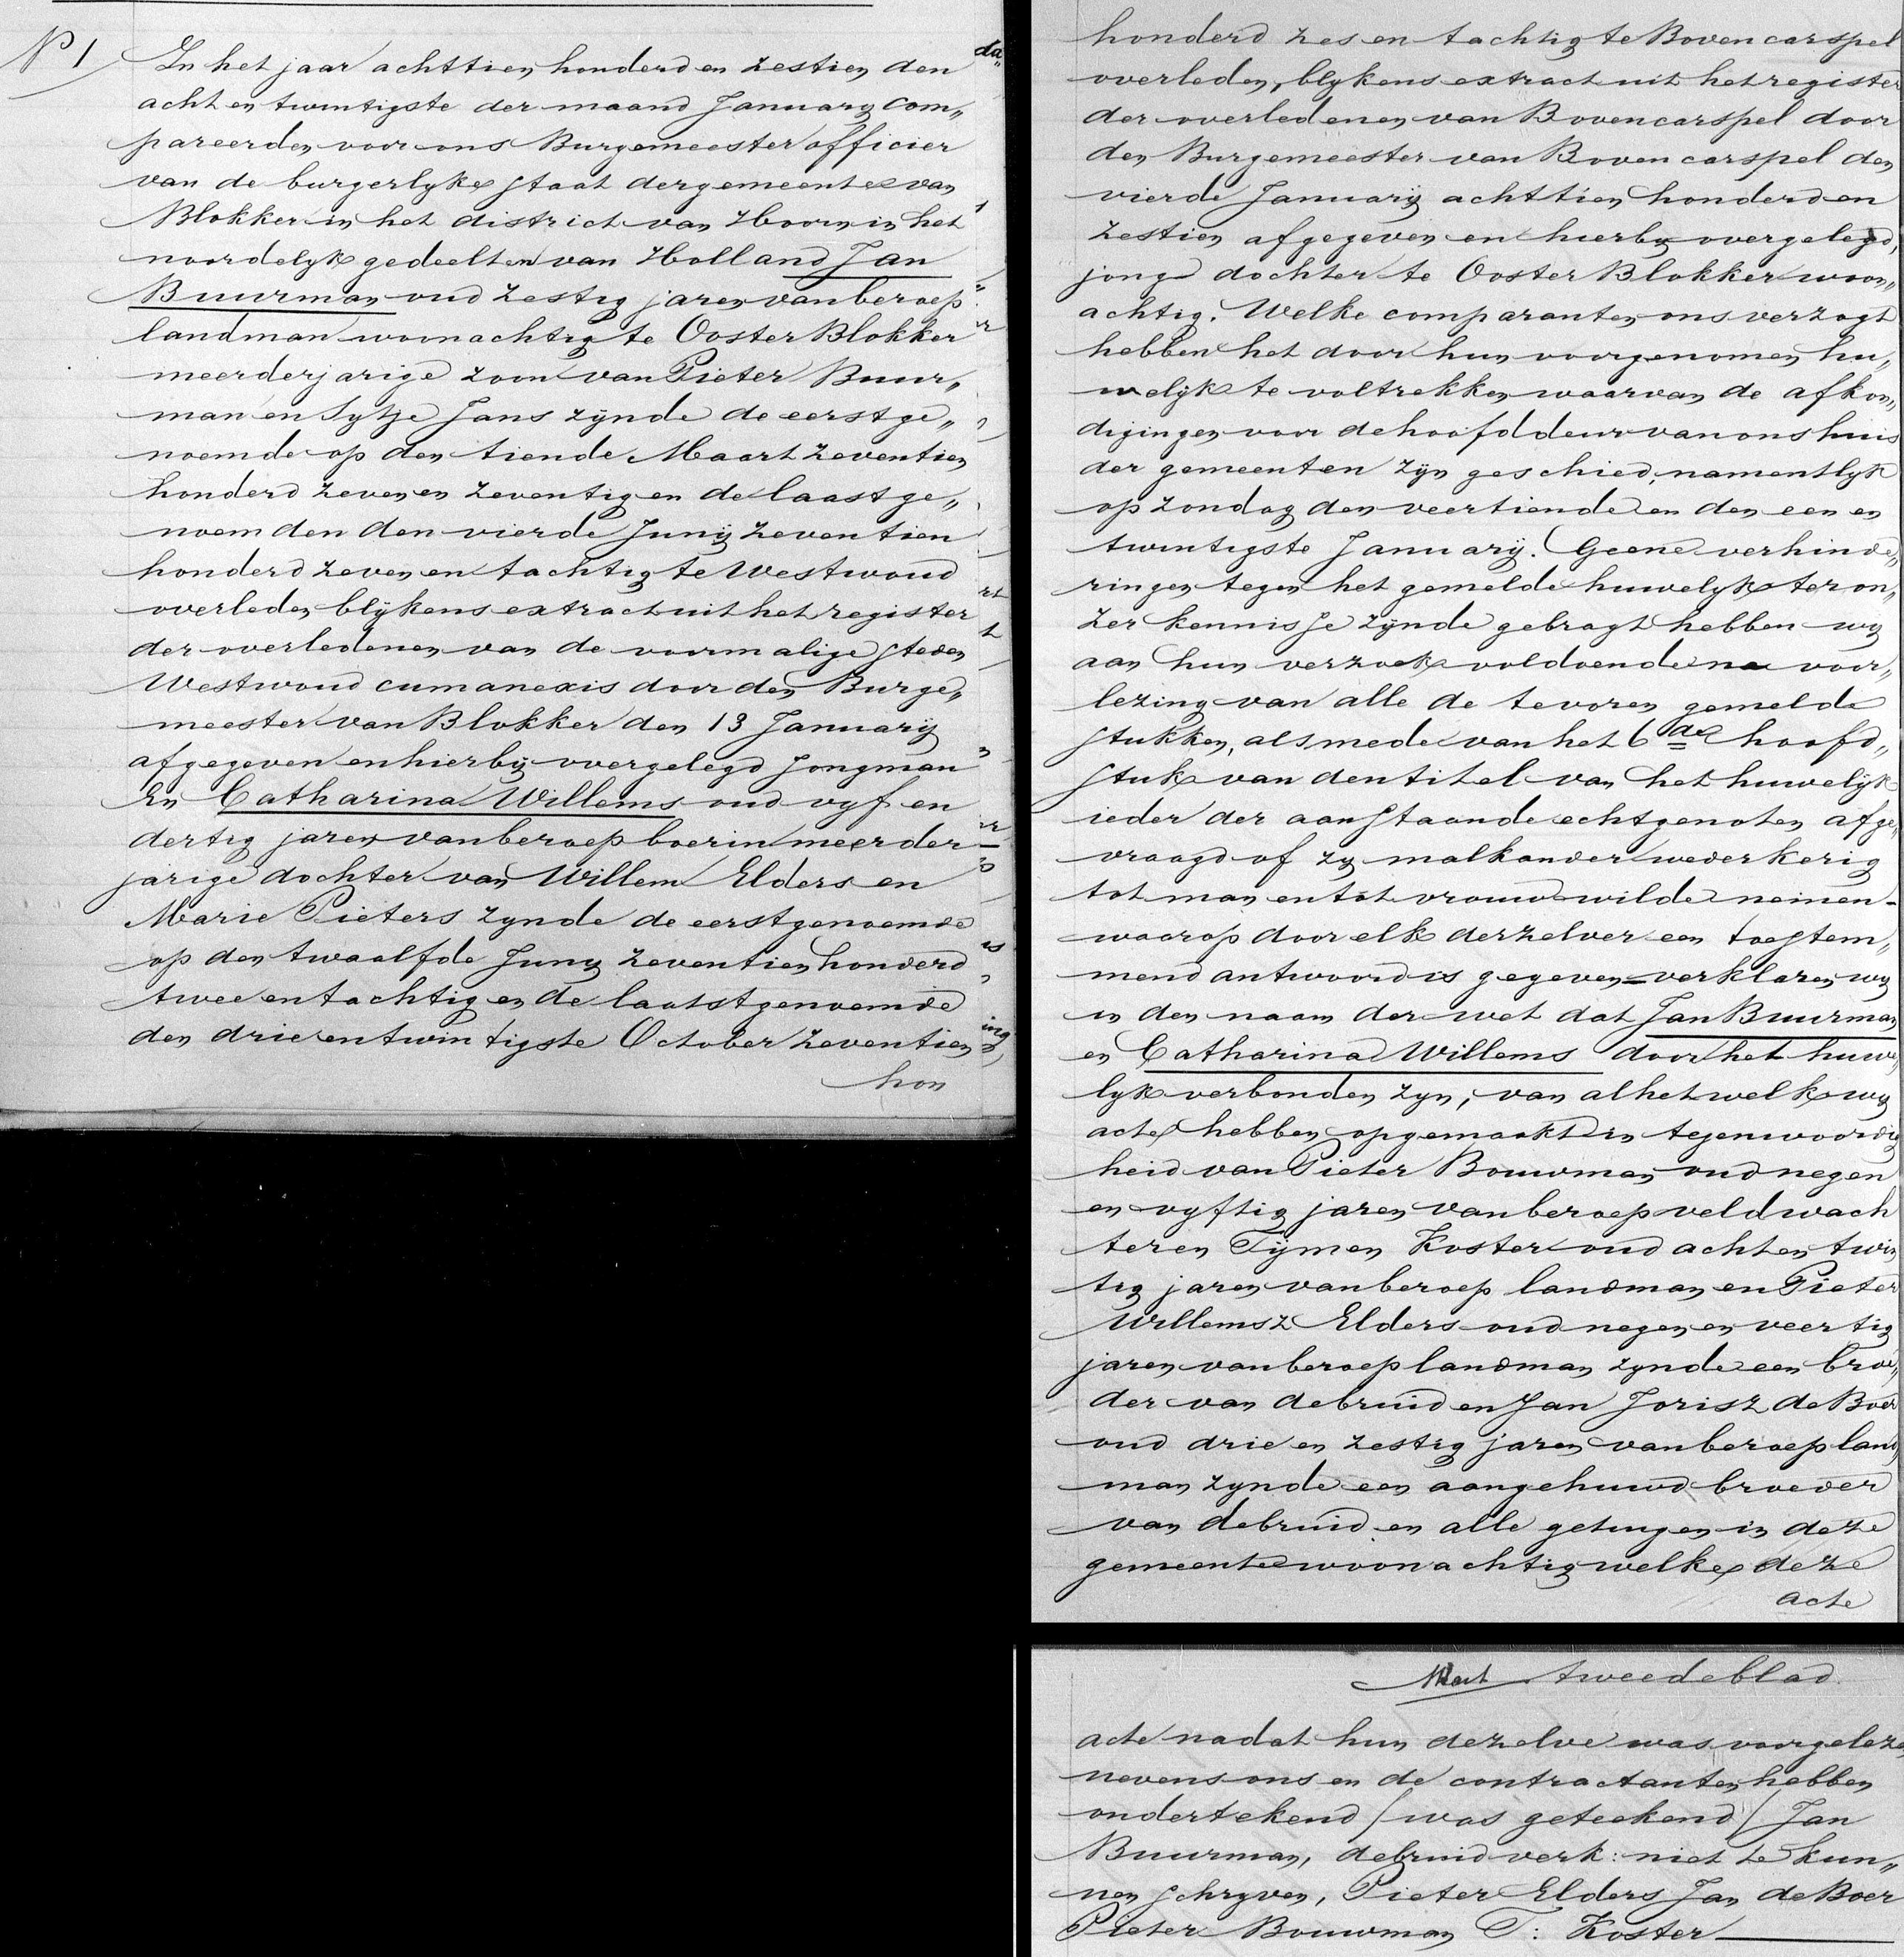 N° 1
In het jaar achttien honderd en zestien den
acht en twintigste der maand January com„
pareerden voor ons Burgemeester officier
van de burgerlyke staat der gemeente van
Blokker in het district van Hoorn in het
noordelyk gedeelten van Holland Jan
Buurman oud zestig jaren van beroep
landman woonachtig te Ooster Blokker
meerderjarige zoon van Pieter Buur„
man en Sytje Jans zynde de eerstge„
noemde op den tiende Maart zeventien
honderd zeven en zeventig en de laastge„
noemden den vierde Junij zeventien
honderd zeven en tachtig te Westwoud
overleden blijkens extract uit het register
der overledenen van de voormalige steden
Westwoud cumanexis door den Burge„
meester van Blokker den 13 Januarij
afgegeven en hierby overgelegd jongman
En Catharina Willems oud vyf en
dertig jaren van beroep boerin meerder
jarige dochter van Willem Elders en
Marie Pieters zynde de eerstgenoemde
op den twaalfde Juny zeventien honderd
twee en tachtig en de laatstgenoemde
den drie en twintigste October zeventien
hon
honderd zes en tachtig te Bovencarspel
overleden, blykens extract uit het register
der overledenen van Bovencarspel door
den Burgemeester van Bovencarspel den
vierde Januarij achttien honderd en
zestien afgegeven en hierby overgelegd,
jonge dochter te Ooster Blokker woon„
achtig. Welke comparanten ons verzogt
hebben het door hun voorgenomen hu„
welyk te voltrekken waarvan de afkon„
digingen voor de hoofddeur van ons huis
der gemeenten zyn geschied, namentlyk
op zondag den veertiende en den een en
twintigste Januarij. Geene verhinde„
ringen tegen het gemelde huwelyk ter on„
zer kennisse zynde gebragt hebben wy
aan hun verzoek voldoende na voor„
lezing van alle de tevoren gemelde
stukken, alsmede van het 6de hoofd„
stuk van den titel van het huwelijk
ieder der aanstaande echtgenoten afge„
vraagd of zy malkander wederkerig
tot man en tot vrouw wilde nemen –
waarop door elk derzelver een toestem„
mend antwoord is gegeven – verklaren wy
in den naam der wet dat Jan Buurman
en Catharina Willems door het huwe„
lyk verbonden zyn, van al hetwelk wy
acte hebben opgemaakt in tegenwoordig
heid van Pieter Bouwman oud negen
en vyftig jaren van beroep veldwach
ter en Tijmen Koster oud acht en twin
tig jaren van beroep landman en Pieter
Willemsz Elders oud negen en veertig
jaren van beroep landman zynde een broe„
der van de bruid en Jan Jorisz de Boer
oud drie en zestig jaren van beroep land„
man zynde een aangehuwd broeder
van de bruid en alle getuigen in deze
gemeente woonachtig welke deze
acte
tweede blad
acte nadat hun dezelve was voorgelezen
nevens ons en de contractanten hebben
ondertekend / was geteekend / Jan
Buurman, de bruid verk: niet te kun„
nen schryven, Pieter Elders Jan de Boer
Pieter Bouwman T: Koster